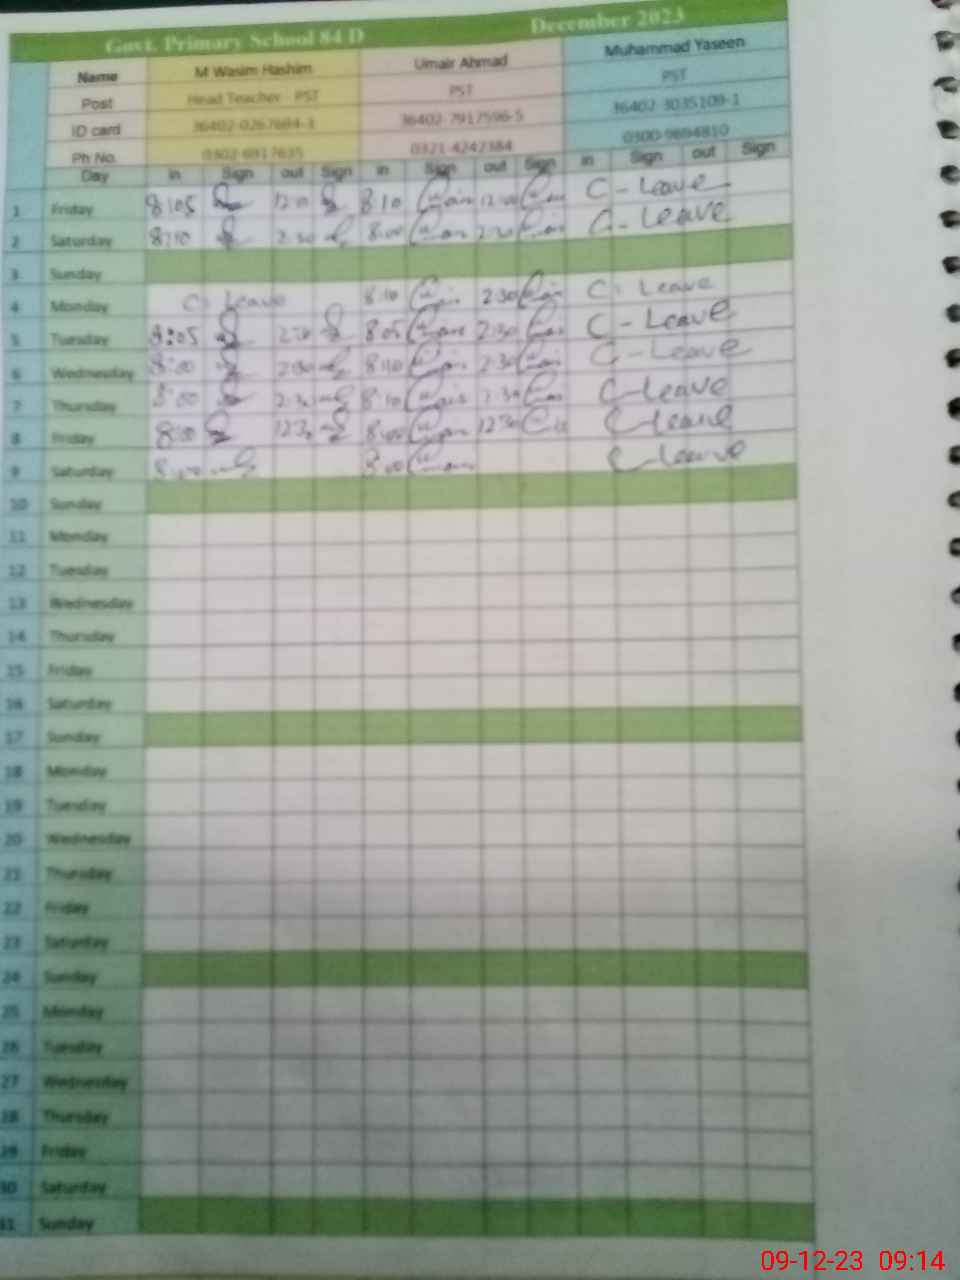 Govt. Primary School 84 D December 2023
Name M Wasim Hashim Umair Ahmad Muhammad Yaseen
Post Head Teacher - PST PST PST
ID card 36402-7917596-5 36402-3035109-1
Ph No. 0321-4242384
Day in Sign out Sign in Sign out Sign in Sign out Sign
1 Friday 8:05 8:10 C-Leave
2 Saturday 8:10 2:30 8:00 2:30 C-Leave
3 Sunday
4 Monday C-Leave 8:10 2:30 C-Leave
5 Tuesday 8:05 2:30 8:05 2:30 C-Leave
6 Wednesday 8:00 2:30 8:10 2:30 C-Leave
7 Thursday 8:00 2:30 8:10 2:30 C-Leave
8 Friday 8:00 12:30 8:00 12:30 C-Leave
9 Saturday 8:00 8:00 C-Leave
10 Sunday
11 Monday
12 Tuesday
13 Wednesday
14 Thursday
15 Friday
16 Saturday
17 Sunday
18 Monday
19 Tuesday
20 Wednesday
21 Thursday
22 Friday
23 Saturday
24 Sunday
25 Monday
26 Tuesday
27 Wednesday
28 Thursday
29 Friday
30 Saturday
31 Sunday
09-12-23 09:14